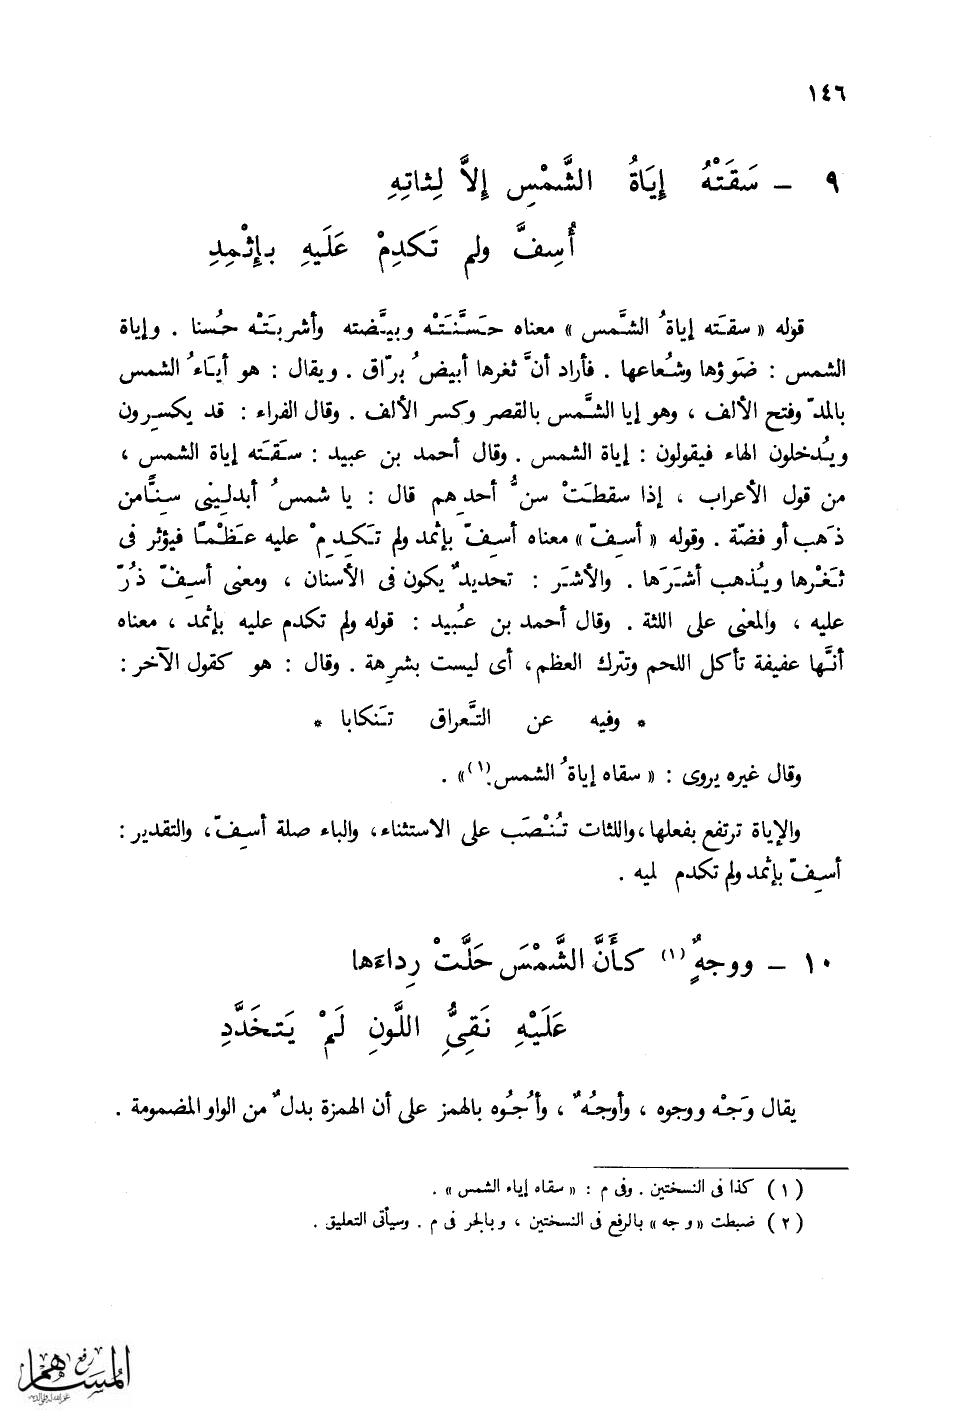 ١٤٦
٩ – سَقَتْهُ إِيَاةُ الشَّمْسِ إِلاَّ لِثاتِهِ
أُسِفَّ ولم تَكدِمْ عَلَيهِ بـإِثْمِدِ
قوله « سقـَته إياةُ الشَّمس » معناه حـَسَّنَتـْه وبيَّضته وأشربتـَتْه حُسنا . وإياة
الشمس : ضَوؤها وشـُعاعها . فأراد أنَّ ثغرها أبيضُ برّاق . ويقال : هو أيـَاءُ الشمس
بالمدّ وفتح الألف ، وهو إيا الشَّمس بالقصر وكسر الألف . وقال الفراء : قد يكسِرون
ويـُدخلون الهاء فيقولون : إياة الشمس . وقال أحمد بن عبيد : سـَقـَته إياة الشمس ،
من قول الأعراب ، إذا سقطـَتْ سنُّ أحدِهم قال : يا شمسُ أبدلِينى سِنـًّا من
ذهَب أو فضّة . وقوله « أسـِفّ » معناه أسِفّ بإثمد ولم تـَكـدِمْ عليه عـَظْمـًا فيؤثر فى
ثـَغـْرها ويـُذهب أشـَرَها . والأشـَر : تحديدٌ يكون فى الأسنان ، ومعنى أسِفّ ذُرّ
عليه ، والمعنى على اللثة . وقال أحمد بن عـُبيد : قوله ولم تكدم عليه بإثمد ، معناه
أنـَّها عفيفة تأكل اللحم وتترك العظم، أى ليست بشرِهة . وقال : هو كقول الآخر :
* وفيه عن التـَّعراق تـَنكابا *
وقال غيره يروى : « سقاه إياةُ الشمس(١)» .
والإياة ترتفع بفعلها، واللثات تـُنـْصَب على الاستثناء، والباء صلة أسـِفّ، والتقدير :
أسـِفّ بإثمد ولم تكدم ليه .
١٠ – ووجهٌ(١) كـأَنَّ الشَّمْسَ حَلَّتْ رِداءَها
عَلَيْهِ نَقِىُّ اللَّونِ لَمْ يَتخَدَّدِ
يقال وَجـْه ووجوه ، وأوجـُهٌ ، وأُجـُوه بالهمز على أن الهمزة بدلٌ من الواو المضمومة .
( ١ ) كذا فى النسختين . وفى م : « سقاه إياء الشمس » .
( ٢ ) ضبطت « وجه » بالرفع فى النسختين ، وبالجر فى م . وسيأتى التعليق .
رفع
المساهم